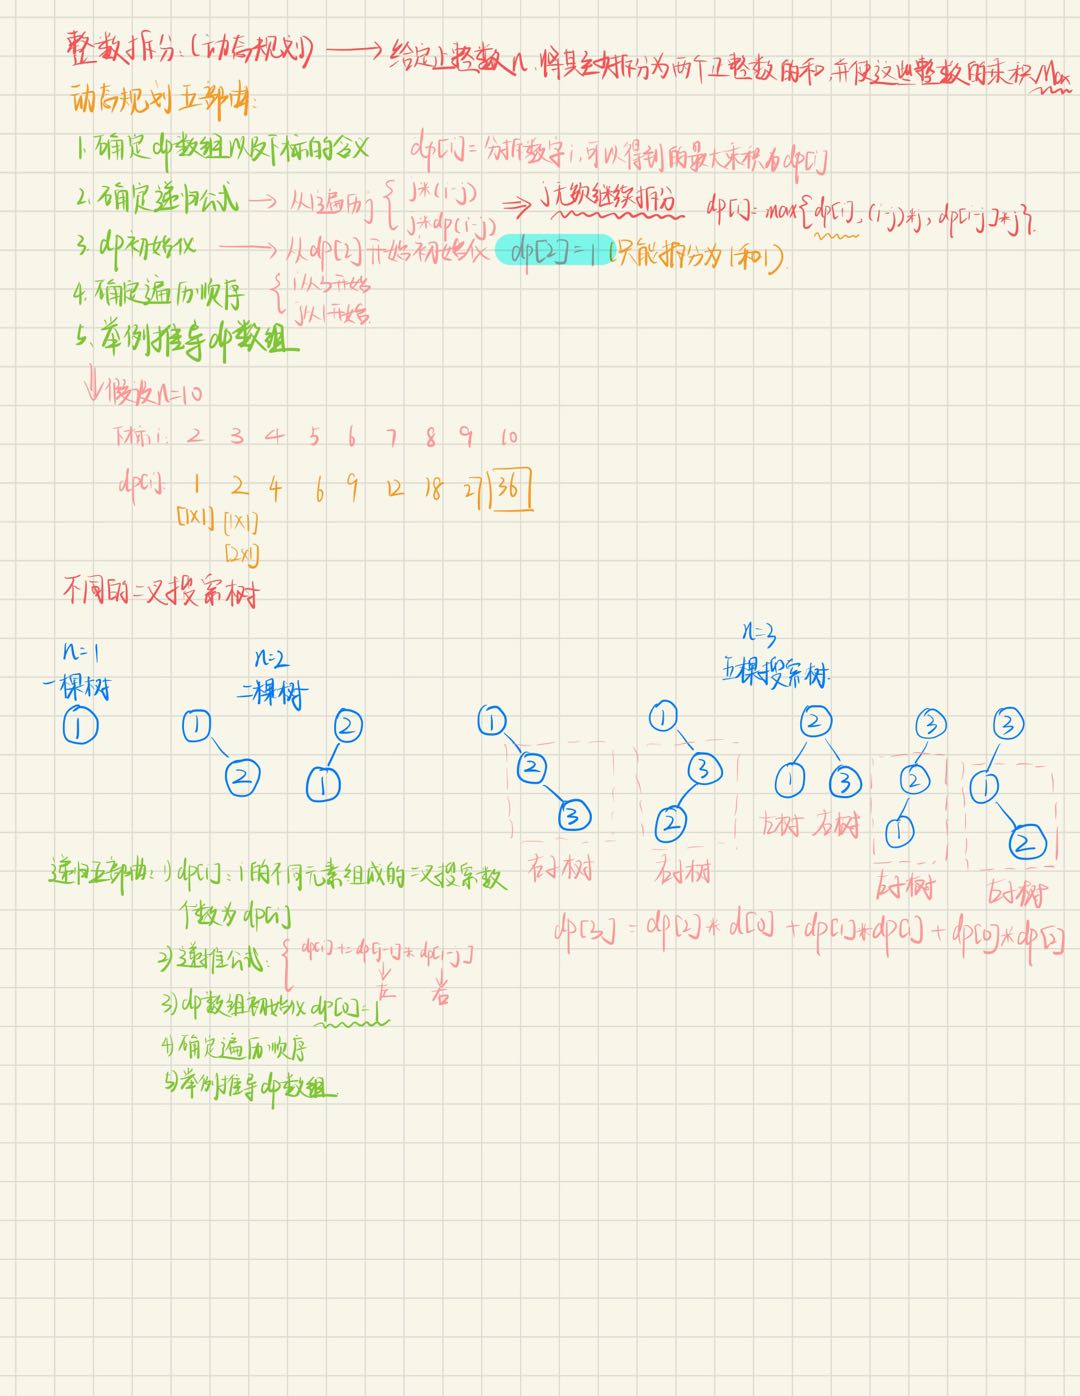 整数拆分:(动态规划) → 给定正整数n,将其至少拆分为两个正整数的和,并使这些整数的乘积Max
动态规划五部曲:
1.确定dp数组以及下标的含义 dp[i]=分拆数字i,可以得到的最大乘积为dp[i]
2.确定递归公式 → 从1遍历j { j*(i-j)
j*dp(i-j) ⇒ j无须继续拆分 dp[i]=max{dp[i],(i-j)*j,dp[i-j]*j}.
3.dp初始化 → 从dp[2]开始初始化 dp[2]=1 (只能拆分为1和1).
4.确定遍历顺序 { i从3开始
j从1开始.
5.举例推导dp数组
↓假设n=10
下标i: 2 3 4 5 6 7 8 9 10
dp[i]: 1 2 4 6 9 12 18 27 36
[1×1] [1×1]
[2×1]
不同的二叉搜索树
n=1
一棵树
n=2
二棵树
n=3
五棵搜索树.
1 1 2 1 1 2 3 3
2 1 2 3 1 3 2 1
3 2 1 2
左树 右树
右子树 右子树 左子树 左子树
递归五部曲: 1) dp[i]: i的不同元素组成的二叉搜索数
个数为dp[i]
dp[3] = dp[2]*d[0] + dp[1]*dp[1] + dp[0]*dp[2]
2)递推公式: { dp[i]+=dp[j-1]*dp[i-j]
左 右
3)dp数组初始化dp[0]=1
4)确定遍历顺序
5)举例推导dp数组.